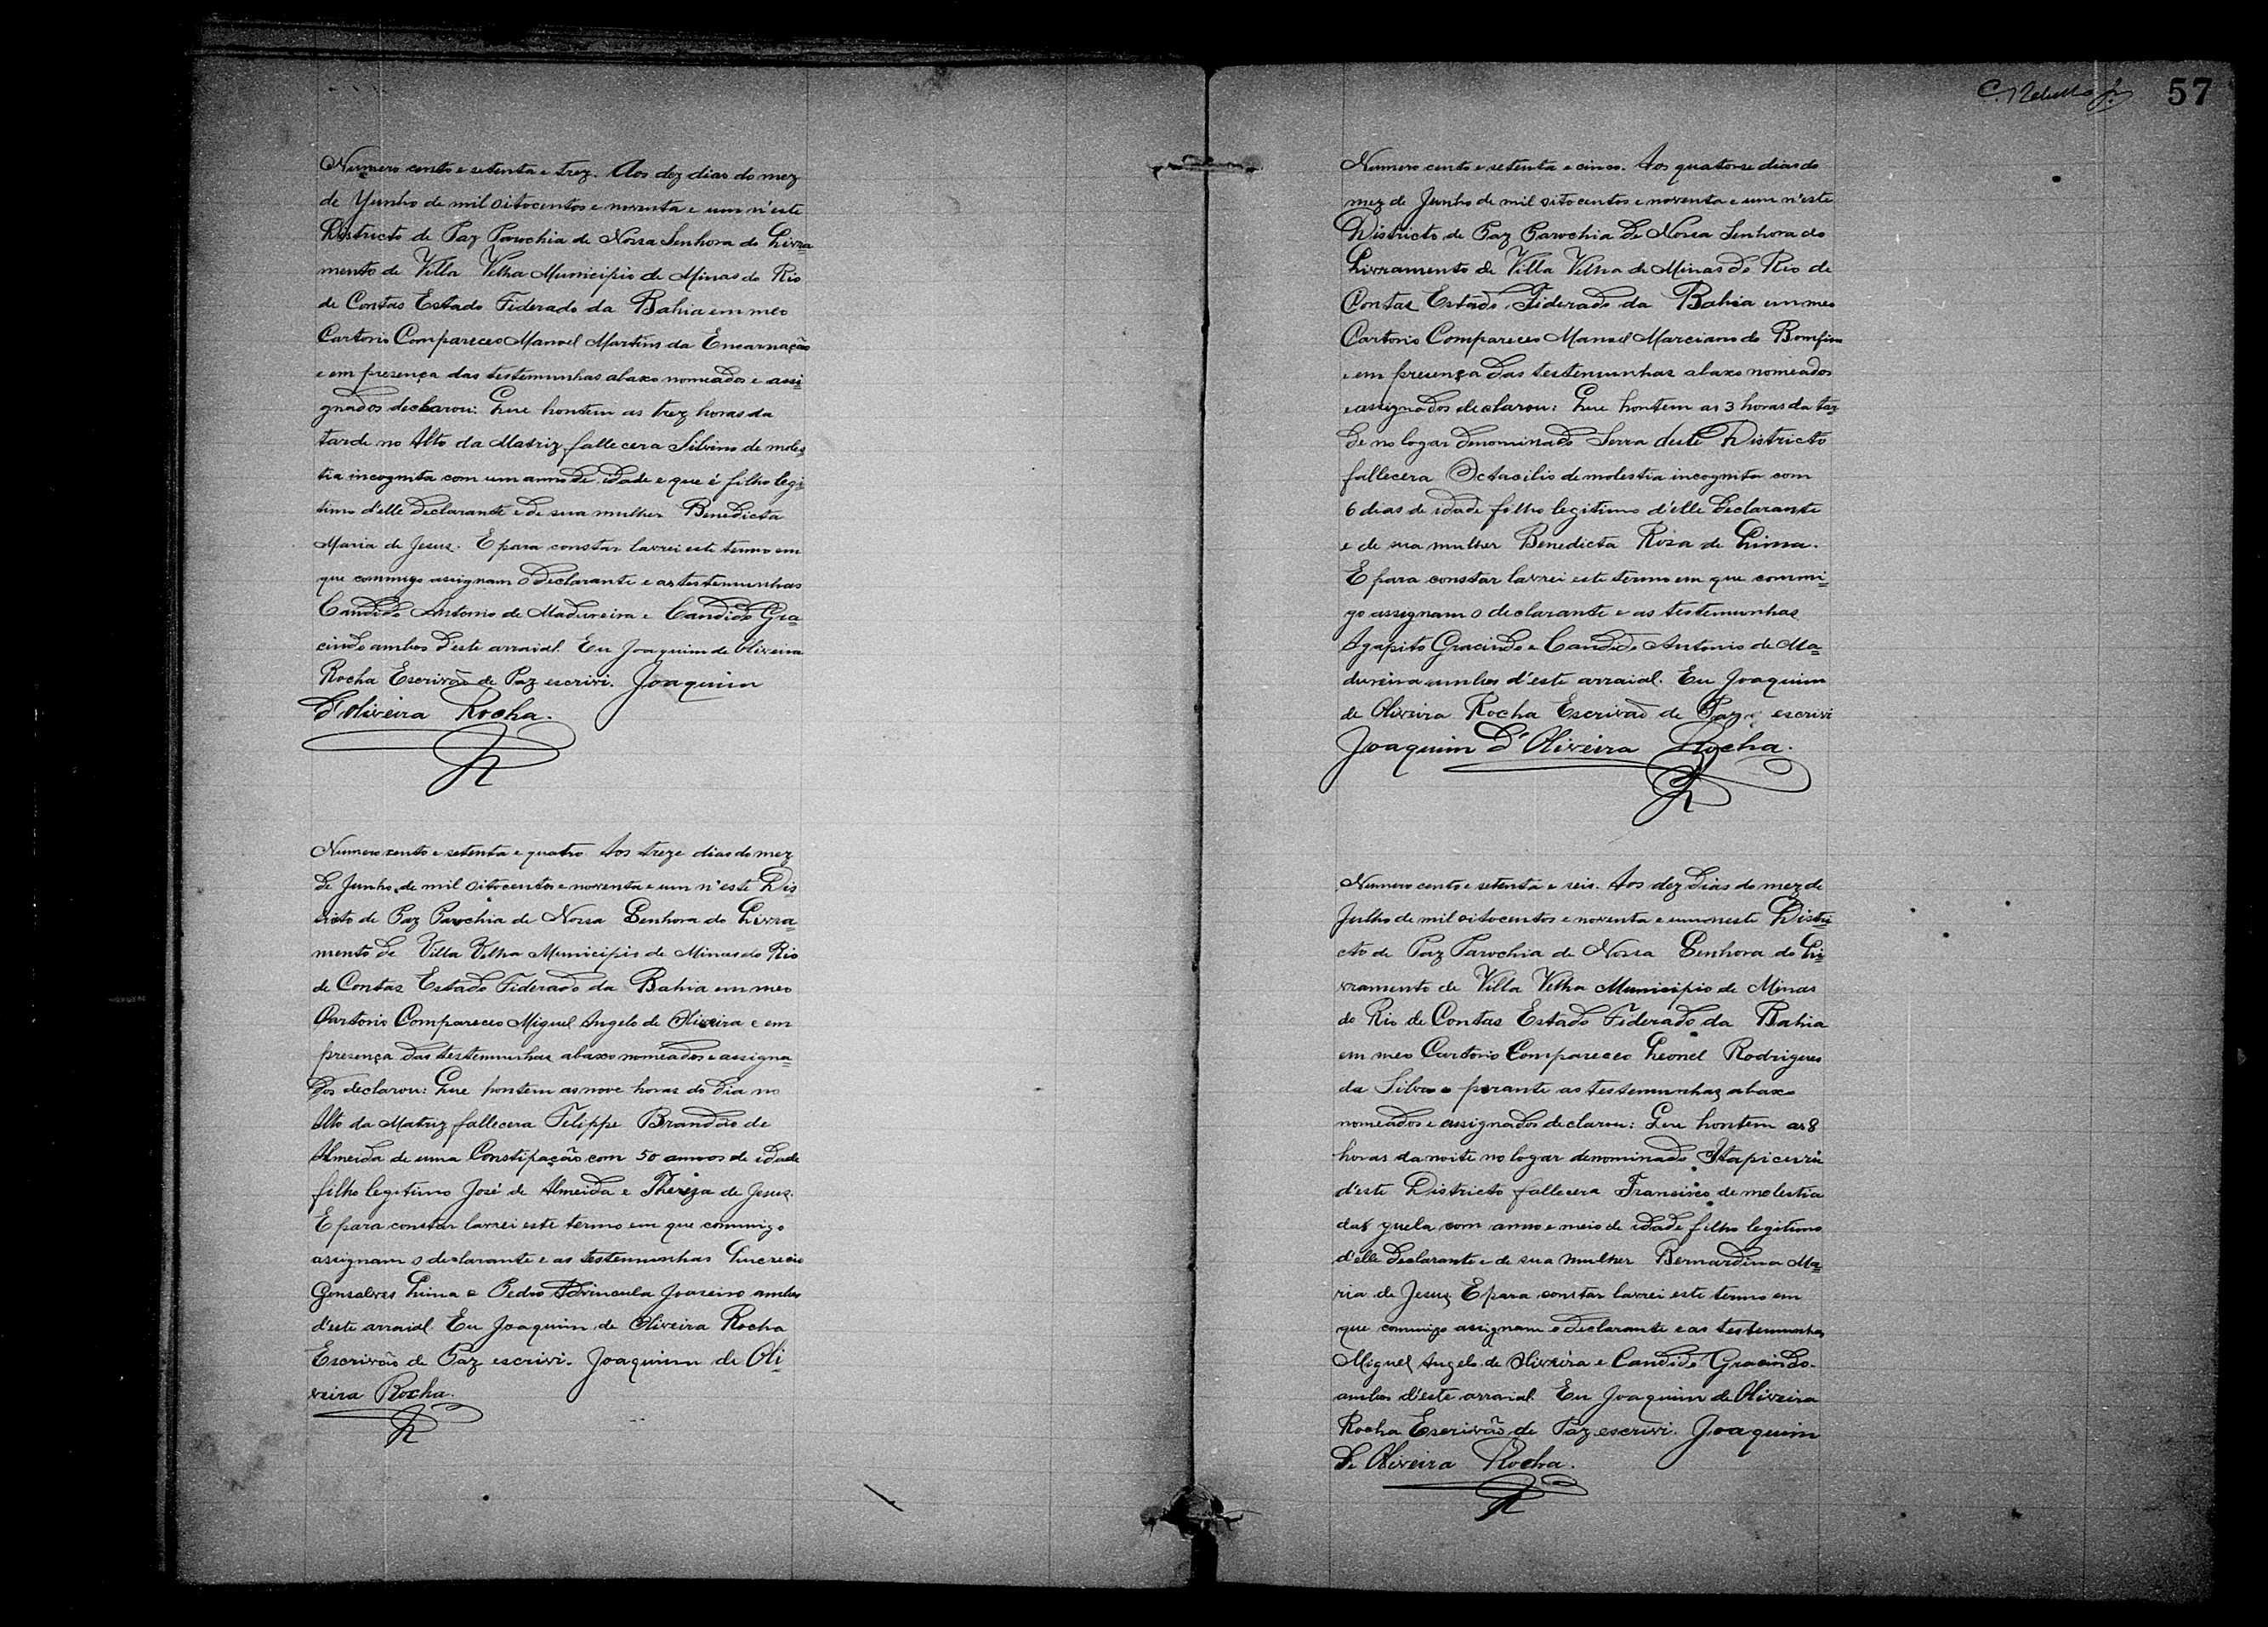 Numero cento e setenta e trez. Aos dez dias do mez
de Junho de mil oitocentos e noventa e um n'este
Districto de Paz Parochia de Nossa Senhora do Livra=
mento de Villa Velha Municipio de Minas do Rio
de Contas Estado Federado da Bahia em meo
Cartorio Compareceo Manoel Martins da Encarnação
e em presença das testemunhas abaxo nomeados e assi=
gnados declarou: Que hontem as trez horas da
tarde no Alto da Matriz fallecera Silvino de moles=
tia incognita com um anno de idade e que é filho legi=
timo d'elle declarante e de sua mulher Benedicta
Maria de Jesus. E para constar lavrei este termo em
que commigo assignam o declarante e as testemunhas
Candido Antonio de Madureira e Candido Gra=
cindo ambos d'este arraial. Eu Joaquim de Oliveira
Rocha Escrivão de Paz escrivi. Joaquim
d'Oliveira Rocha.
Numero cento e setenta e quatro Aos treze dias do mez
de Junho de mil oitocentos e noventa e um n'este Dis
tricto de Paz Parochia de Nossa Senhora do Livra=
mento de Villa Velha Municipio de Minas do Rio
de Contas Estado Federado da Bahia em meo
Cartorio Compareceo Miguel Angelo de Oliveira e em
presença das testemunhas abaxo nomeados e assigna=
dos declarou: Que hontem as nove horas do dia no
Alto da Matriz fallecera Felippe Brandão de
Almeida de uma Constipação com 50 annos de idade
filho legitimo José de Almeida e Thereza de Jesus.
E para constar lavrei este termo em que commigo
assignam o declarante e as testemunhas Lucrecio
Gonsalves Lima e Pedro Advincula Joaseiro ambos
d'este arraial. Eu Joaquim de Oliveira Rocha
Escrivão de Paz escrivi. Joaquim de Oli=
veira Rocha.
57
Numero cento e setenta e cinco. Aos quatorse dias do
mez de Junho de mil oitocentos e noventa e um n'este
Districto de Paz Parochia de Nossa Senhora do
Livramento de Villa Velha de Minas do Rio de
Contas Estado Federado da Bahia em meo
Cartorio Compareceo Manoel Marciano do Bomfim
e em presença das testemunhas abaxo nomeados
e assignados declarou: Que hontem as 3 horas da tar=
de no logar denominado Serra deste Districto
fallecera Octacilio de molestia incognita com
6 dias de idade filho legitimo d'elle declarante
e de sua mulher Benedicta Roza de Lima.
E para constar lavrei este termo em que commi=
go assignam o declarante e as testemunhas
Agapito Gracindo e Candido Antonio de Ma=
dureira ambos d'este arraial. Eu Joaquim
de Oliveira Rocha Escrivão de Paz escrivi
Joaquim d'Oliveira Rocha.
Numero cento e setenta e seis. Aos dez dias do mez de
Julho de mil oitocentos e noventa e um neste Distri=
cto de Paz Parochia de Nossa Senhora do Li=
vramento de Villa Velha Municipio de Minas
do Rio de Contas Estado Federado da Bahia
em meo Cartorio Compareceo Leonel Rodrigues
da Silva e perante as testemunhas abaxo
nomeados e assignados declarou: Que hontem as 8
horas da noite no logar denominado Itapicurú
d'este Districto fallecera Francisco de molestia
das guela com anno e meio de idade filho legitimo
d'elle declarante e de sua mulher Bernardina Ma=
ria de Jesus E para constar lavrei este termo em
que commigo assignam o declarante e as testemunhas
Miguel Angelo de Oliveira e Candido Gracindo
ambos d'este arraial. Eu Joaquim de Oliveira
Rocha Escrivão de Paz escrivi. Joaquim
de Oliveira Rocha.